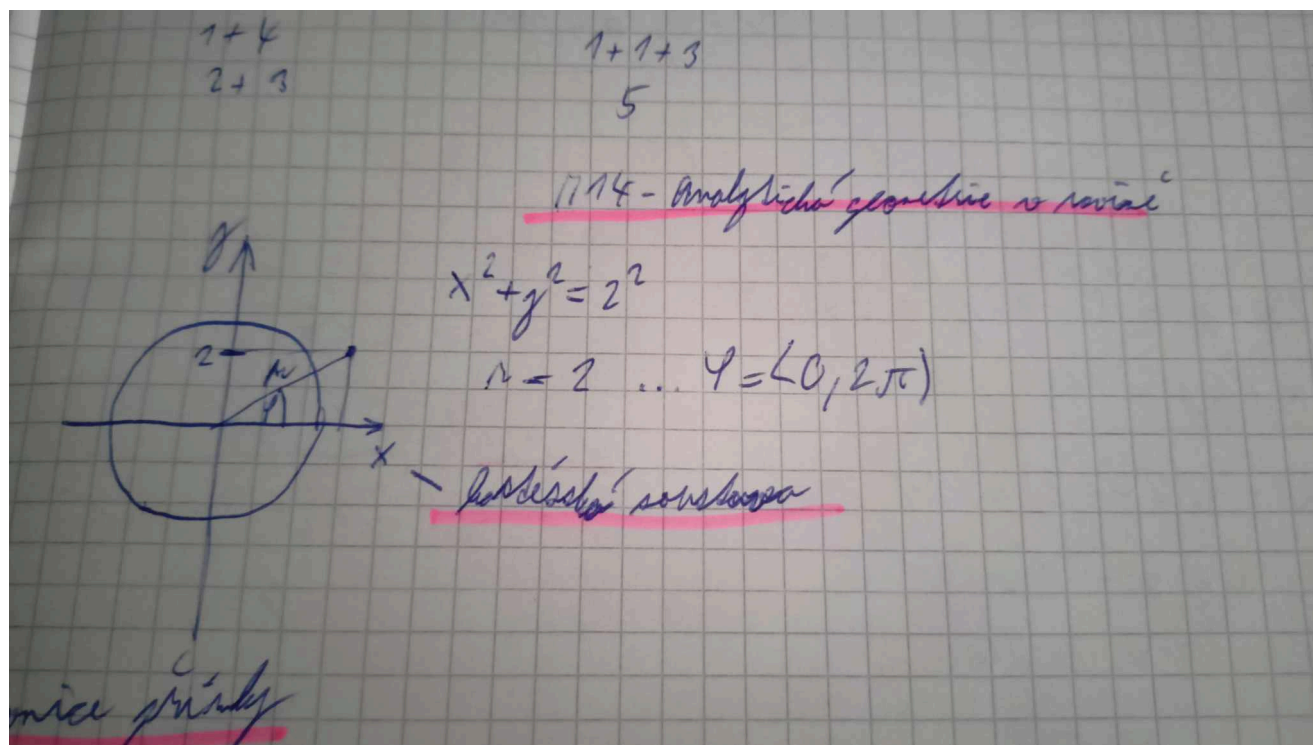 1+4
2+3
1+1+3
5
M14 - Analytická geometrie v rovině
y
x² + y² = 2²
2
r
φ
r = 2 ... φ = <0, 2π)
x
- kartézská soustava
ovnice přímky